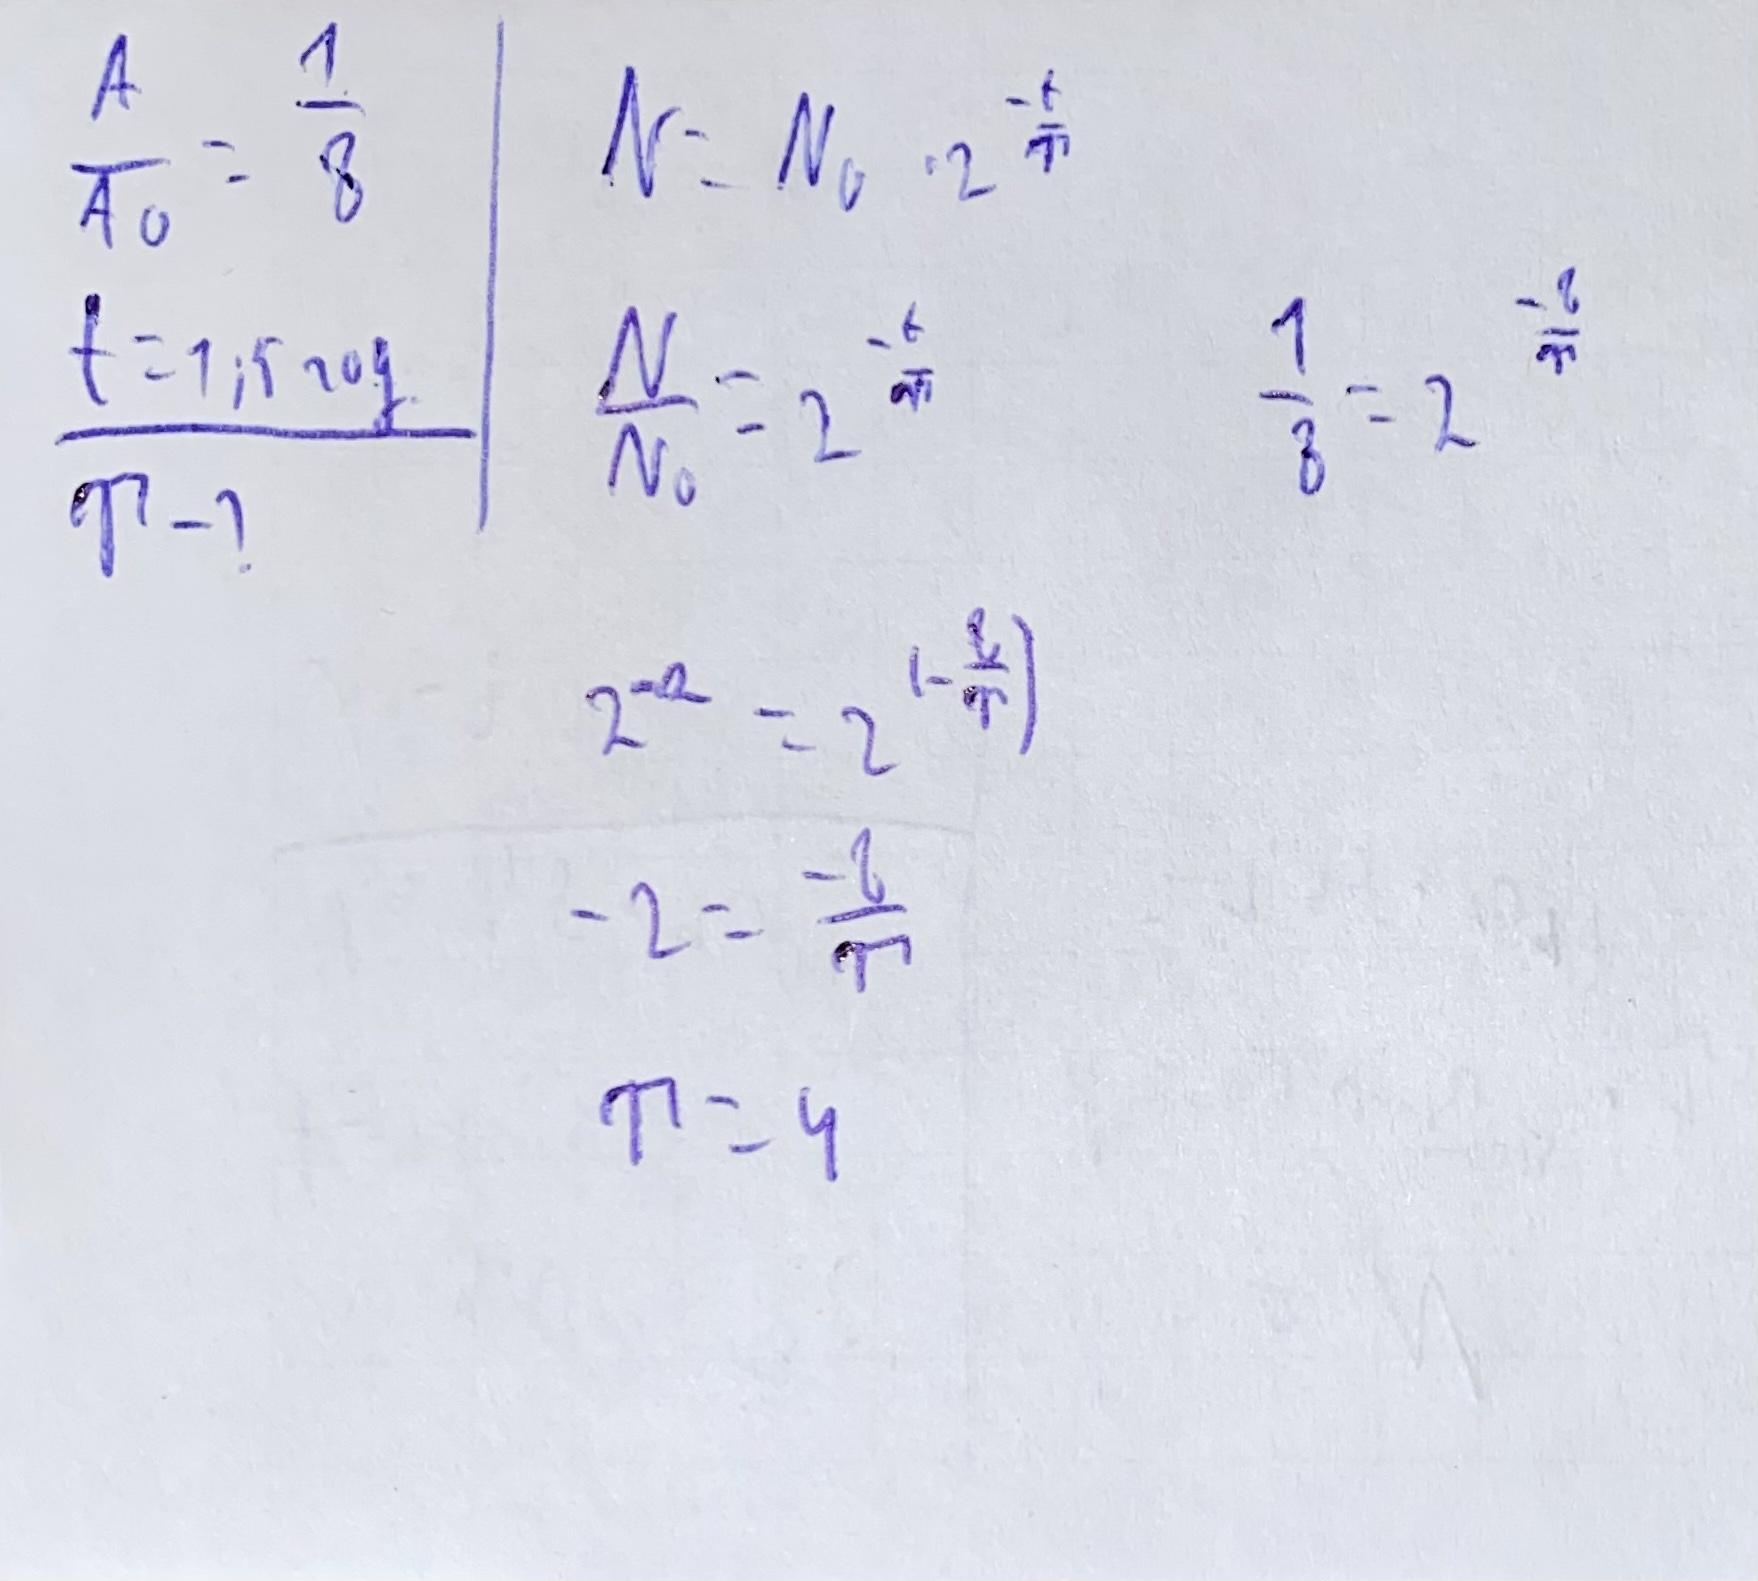 A/A₀ = 1/8
t = 1,5 год
T - ?
N = N₀ · 2^(-t/T)
N/N₀ = 2^(-t/T)
1/8 = 2^(-t/T)
2^(-2) = 2^(-t/T)
-2 = -t/T
T = 4